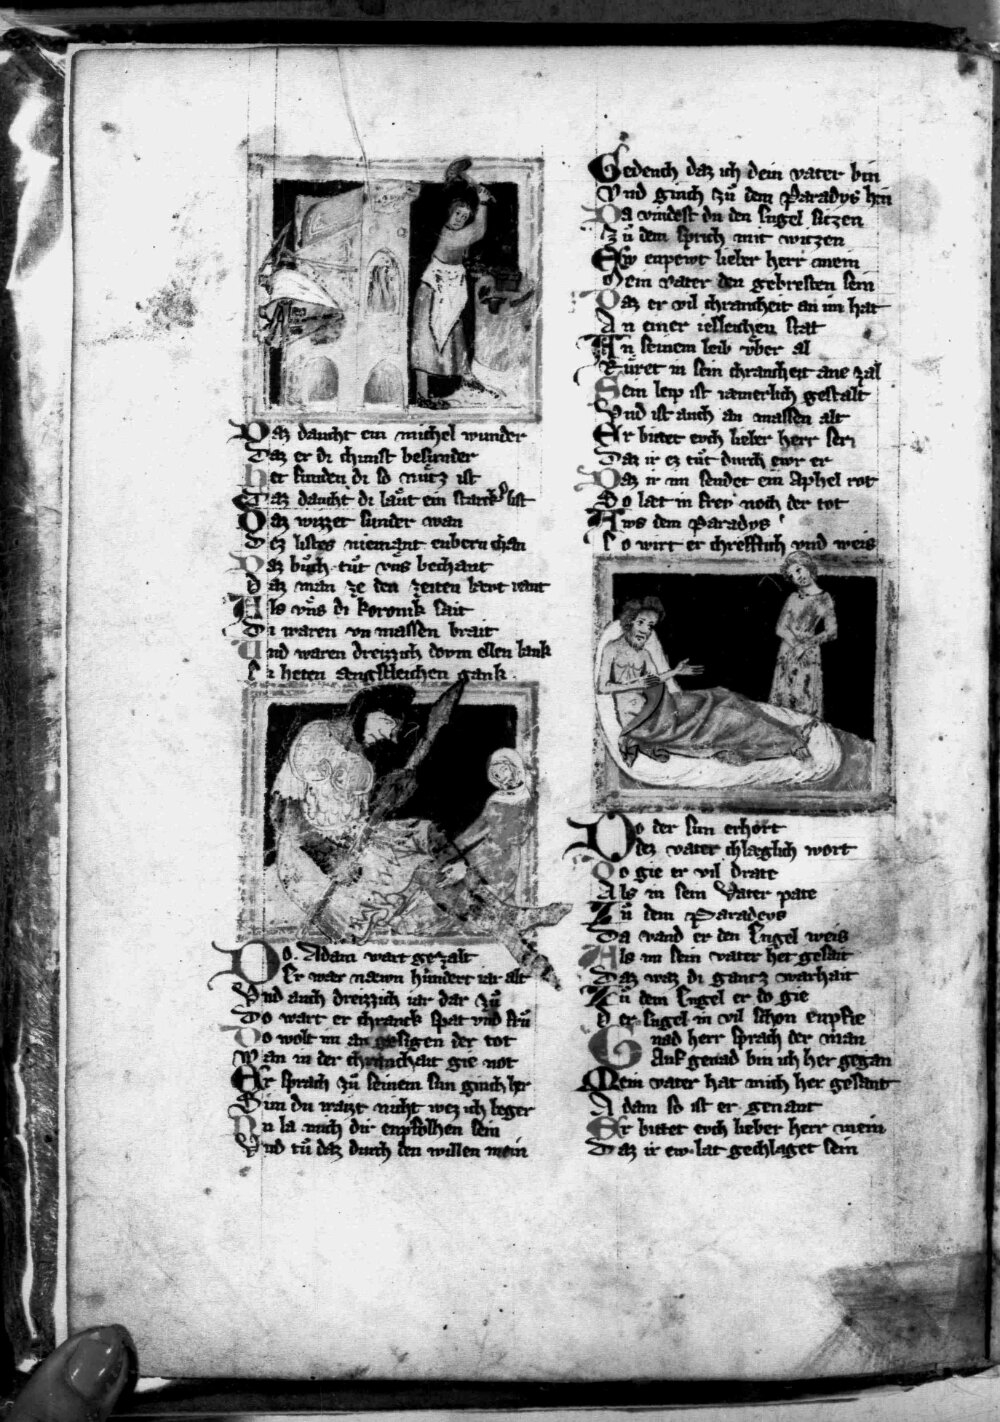 Daz daucht ein michel wunder
Daz er di chunst besunder
Het funden di so nutz ist
Daz daucht di laͤut ein starcker list
Daz wizzet sunder wan
Dez listes niemant enbern chan
Daz buͦch tuͤt vns bechant
Daz man ze den zeiten vant
Als vns di koronik sait
Di waren vn massen brait
Und waren dreizzich doym ellen lank
Si heten aengstleichen gank
Do Adam wart gezalt
Er war naewn hundert iar alt
Vnd auch dreizzich iar dar zuͦ
Do wart er chranck spat vnd fruͦ
Do wolt im an gesigen der tot
Wan in der chranchait gie not
Er sprach zuͦ seinem sun ginch her
Sun du waizt nicht wez ich beger
Nu la mich dir enpfolhen sein
Vnd tuͦ daz durch den willen mein
Gedench daz ich dein vater bin
Vnd ginch zuͦ dem Paradys hin
Da vindest du den Engel sitzen
Zuͦ dem sprich mit witzen
Ew enpewt lieber herr mein
Mein vater den gebresten sein
Daz er vil chrancheit an im hat
An einer iesleichen stat
An seinem leib vber al
Ruͤret in sein chrancheit ane zal
Sein leip ist iaemerlich gestalt
Vnd ist auch an massen alt
Er bittet evch lieber herr ser
Daz ir ez tuͤt durch ewr er
Daz ir im sendet ein Aphel rot
So laet in frey noch der tot
Aws dem Paradys
So wirt er chreftich vnd weis
Do der sun erhort
Dez vater chlaeglich wort
Do gie er vil drate
Als in sein Vater pate
Zuͦ dem Paradeys
Da vand er den Engel weis
Als im sein vater het gesait
Daz waz di gantz warhait
Zuͦ dem Engel er do gie
Der Engel in vil schon enpfie
Gnad herr sprach der man
Auf genad bin ich her gegan
Mein vater hat mich her gesant
Adam so ist er genant
Er bittet evch lieber herr mein
Daz ir ew lat gechlaget sein